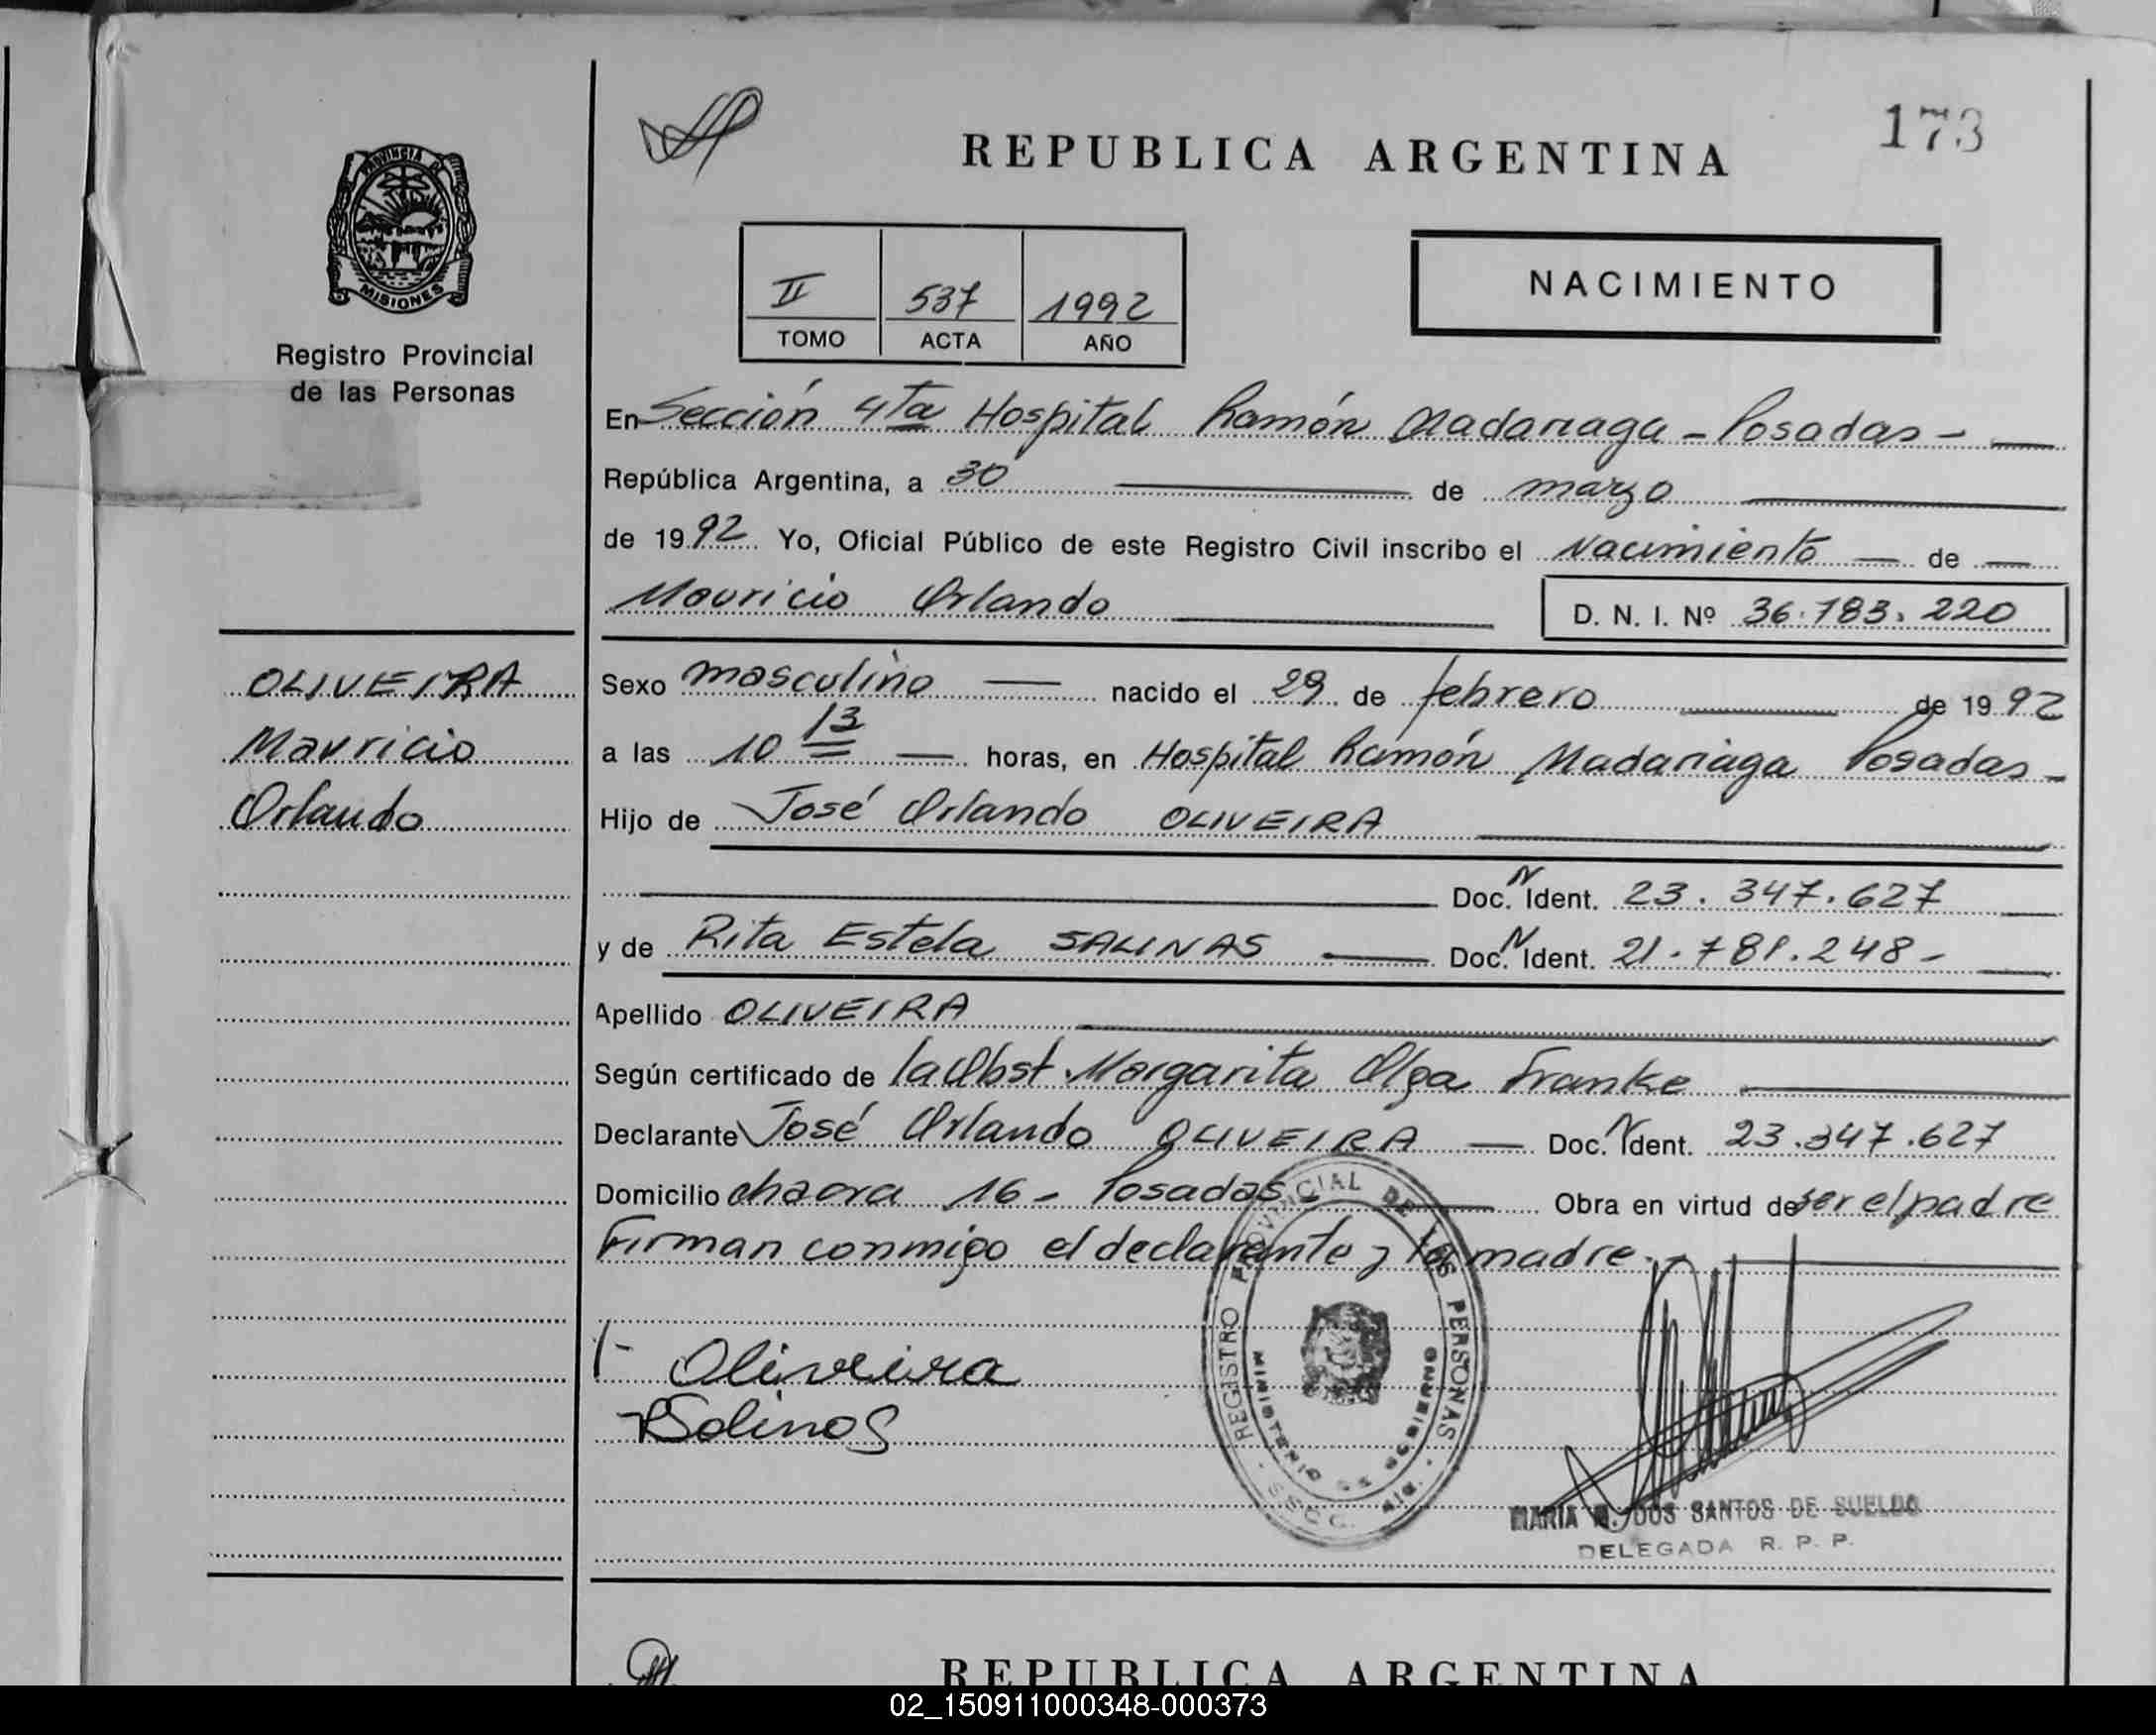 173
REPUBLICA ARGENTINA
PROVINCIA DE
MISIONES
Registro Provincial
de las Personas
II 537 1992
TOMO ACTA AÑO
NACIMIENTO
En Sección 4ta Hospital Ramón Madariaga - Posadas -
República Argentina, a 30 de marzo
de 1992 Yo, Oficial Público de este Registro Civil inscribo el Nacimiento de
Mauricio Orlando D. N. I. Nº 36.783.220
OLIVEIRA
Mauricio
Orlando
Sexo masculino nacido el 29 de febrero de 1992
a las 10 13 horas, en Hospital Ramón Madariaga Posadas-
Hijo de José Orlando OLIVEIRA
Doc. N Ident. 23.347.627
y de Rita Estela SALINAS Doc. N Ident. 21.781.248-
Apellido OLIVEIRA
Según certificado de la Obst. Margarita Olga Franke
Declarante José Orlando OLIVEIRA Doc. N Ident. 23.347.627
Domicilio chacra 16- Posadas- Obra en virtud de ser el padre
Firman conmigo el declarante y la madre.-
Oliveira
RSalinas
REGISTRO PROVINCIAL DE LAS PERSONAS
MINISTERIO DE GOBIERNO
SECC. 4ta.
MARIA DOS SANTOS DE SUELDO
DELEGADA R. P. P.
REPUBLICA ARGENTINA
02_150911000348-000373